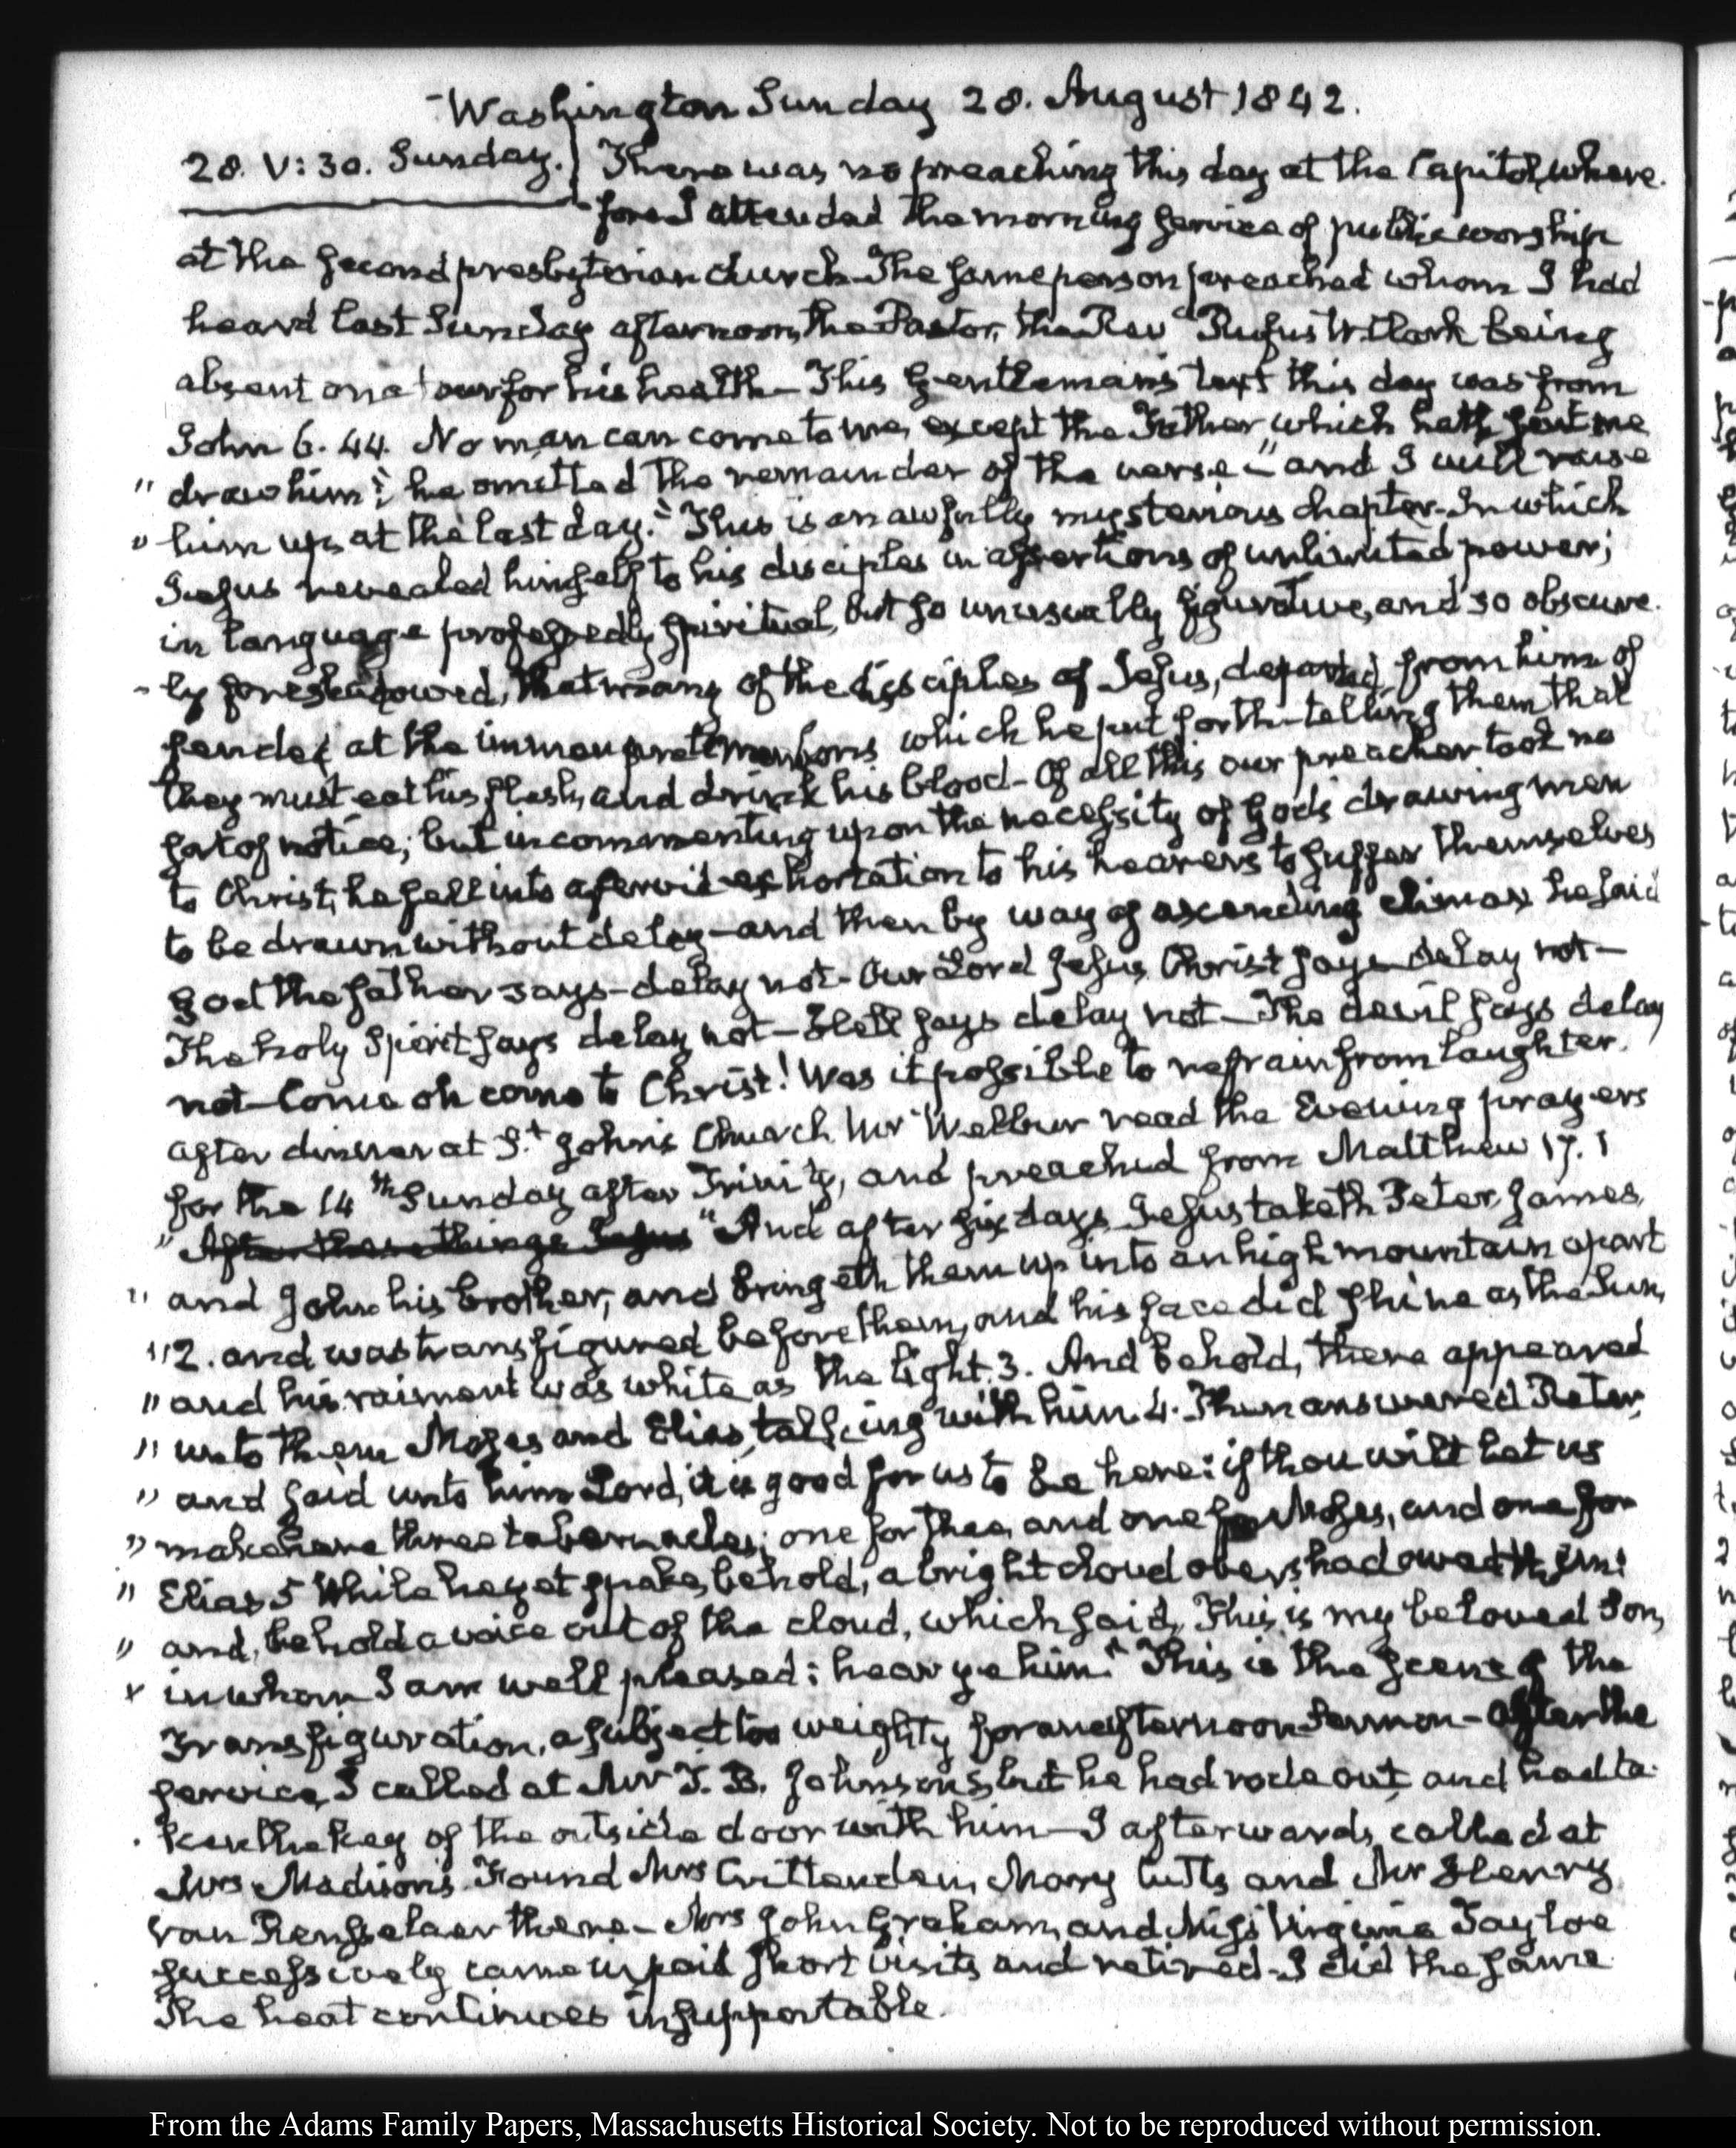 Washington Sunday 28. August 1842.
28. V:30. Sunday. There was no preaching this day at the Capitol, where-
fore I attended the morning service of public worship
at the second presbyterian church. The same person preached whom I had
heard last Sunday afternoon, the Pastor, the Revd Rufus W. Clark being
absent on a tour for his health— This Gentleman's text this day was from
John 6. 44. No man can come to me, except the Father which hath sent me
" draw him"; he omitted the remainder of the verse—"and I will raise
" him up, at the last day." This is an awfully mysterious chapter. In which
Jesus revealed himself to his disciples in assertions of unlimited power;
in language professedly spiritual, but so unusually figurative, and so obscure-
-ly foreshadowed, that many of the disciples of Jesus, departed from him of
fended at the which he put forth—telling them that
they must eat his flesh, and drink his blood— Of all this our preacher took no
sort of notice; but in commenting upon the necessity of God's drawing men
to Christ, he fell into a fervid exhortation to his hearers to suffer themselves
to be drawn without delay—and then by way of ascending climax he said
God the father says—delay not— Our Lord Jesus Christ says—delay not—
The holy Spirit says delay not— Hell says delay not— The devil says delay
not— Come oh come to Christ! Was it possible to refrain from laughter.
after dinner at St. John's Church Mr Welbur read the Evening prayers
for the 14th Sunday after Trinity, and preached from Matthew 17. 1
" After these things Jesus "And after six days Jesus taketh Peter, James,
" and John his brother, and bringeth them up into an high mountain apart
" 2. and was transfigured before them, and his face did shine as the Sun,
" and his raiment was white as the light. 3. And behold, there appeared
" unto them Moses and Elias, talking with him. 4. Then answered Peter,
" and said unto him Lord, it is good for us to be here: if thou wilt let us
" make here three tabernacles; one for thee, and one for Moses, and one for
" Elias 5 While he yet spake, behold, a bright cloud overshadowed them:
" and, behold a voice out of the cloud, which said, This is my beloved Son,
" in whom I am well pleased: hear ye him." This is the scene of the
Transfiguration, a subject too weighty for an afternoon Sermon— After the
service, I called at Mr T. B. Johnson's, but he had rode out, and had ta-
ken the key of the outside door with him— I afterwards called at
Mrs Madison's. Found Mrs Crittenden, Mary Cutts and Mr Henry
van Rensselaer there— Mrs John Graham, and Miss Virginia Tayloe
successively came in, paid short visits and retired— I did the same.
The heat continues insupportable.
From the Adams Family Papers, Massachusetts Historical Society. Not to be reproduced without permission.